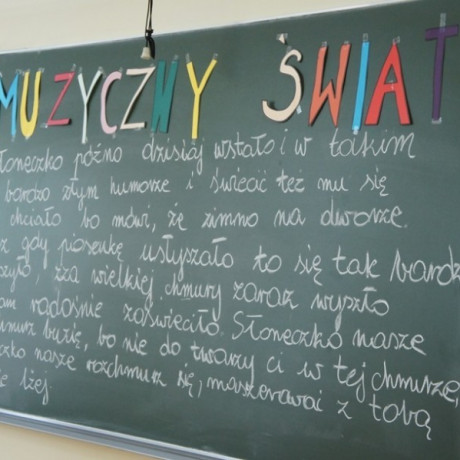 MUZYCZNY ŚWIAT
słoneczko późno dzisiaj wstało i w takim
bardzo złym humorze i świecić też mu się
chciało bo mówi, że zimno na dworze.
gdy piosenkę usłyszało to się tak bardz
zyło, zza wielkiej chmury zaraz wyszło
am radośnie zaświeciło. Słoneczko nasze
chmurz buzię, bo nie do twarzy ci w tej chmurze,
czko nasze rozchmurz się, maszerować z tobą
lżej.